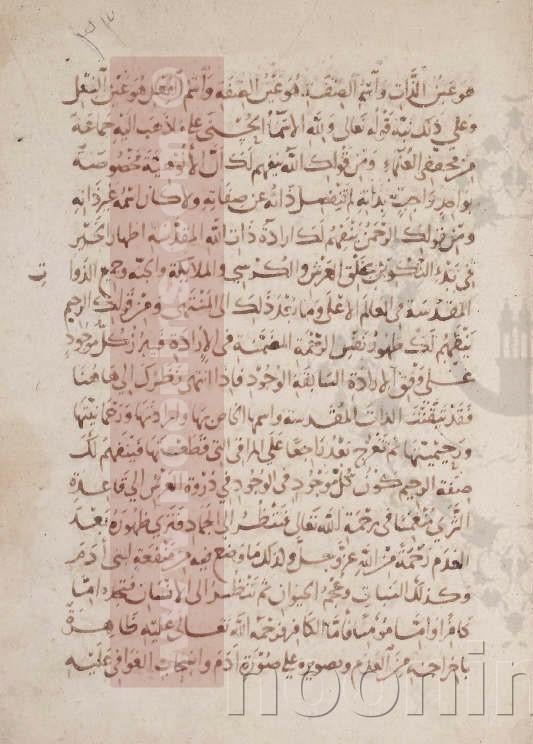 هو عين الذات واسم الصفة هو عين الصفة واسم الفعل هو عين الفعل
وعلى ذلك نبّه قوله تعالى ولله الاسماء الحسنى على ما ذهب اليه جماعة
من محققي العلماء ومن قولك الله يفهم لك ان الالوهية مخصوصة
بواحد واجب بذاته لم تنفصل ذاته عن صفاته ولا كان اسمه غير ذاته
ومن قولك الرحمن يتفهم لك ارادة ذات الله المقدسة اظهار الخير
في بدء التكوين بخلق العرش والكرسي والملائكة والجنة وجميع الذوات
المقدسة في العالم الاعلى وما بعد ذلك الى المنتهى ومن قولك الرحيم
يتفهم لك ظهور نفس الرحمة المضمنة في الارادة فبراز كل موجود
على وفق الارادة السابقة الوجود فاذا انتهى نظرك الى هاهنا
فقد تيقنت الذات المقدسة واسمها الخاص بها وارادتها ورحمانيتها
ورحيميتها ثم تعرج بعد راجعا على المراقي التي قطعتها فيتفهم لك
صفة الرحيم كون كل موجود في الوجود في ذروة العرش الى قاعدة
الثرى منغمسا في رحمة الله تعالى فتنظر الى الجماد فترى ظهوره بعد
العدم رحمة من الله عز وجل ولذلك ما وضع منه بني آدم
وكذلك النبات وعجم الحيوان ثم تنظر الى الانسان فتجده اما
كافرا واما مؤمنا فاما الكافر فرحمة الله تعالى عليه ظاهرة
باخراجه من العدم وتصويره على صورة آدم واضحات العوافي عليه
ت
www.noorinfo.com ©
noonin